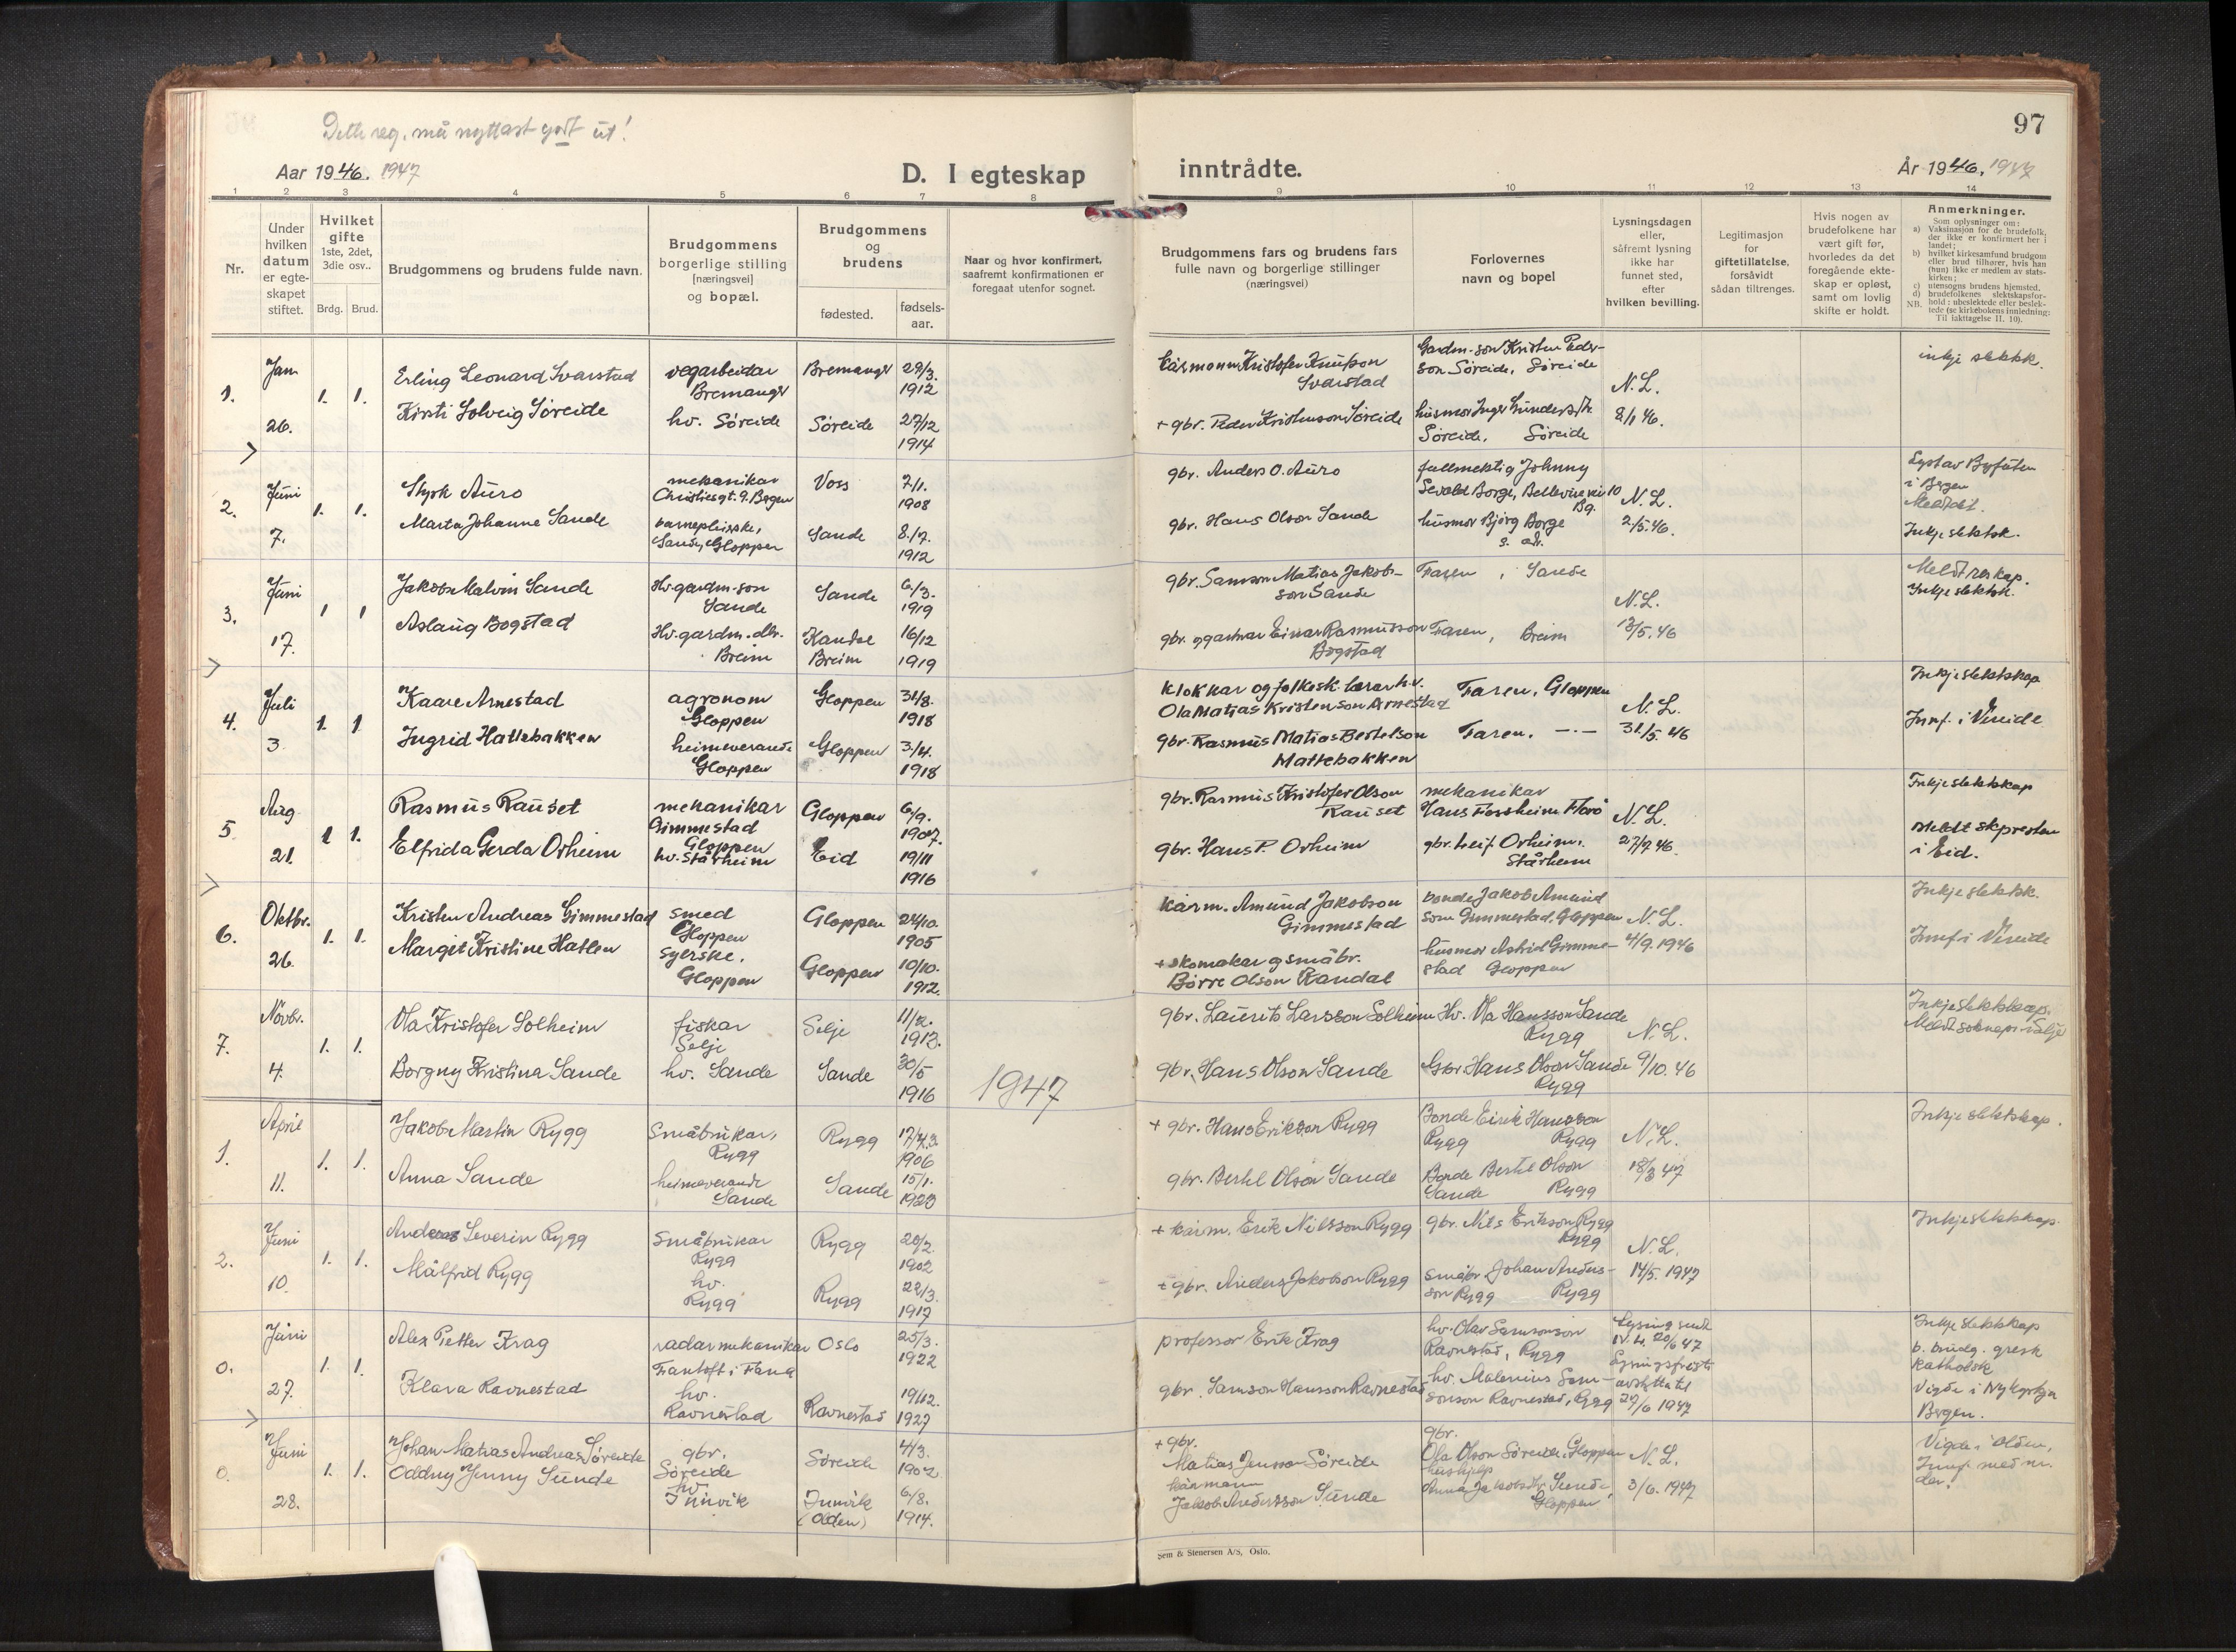 97
Dette reg. må nyttast godt ut!
Aar 1946. 1947
D. I egteskap
inntrådte.
År 1946, 1947
1 2 3 4 5 6 7 8 9 10 11 12 13 14
Nr.
Under
hvilken
datum
er egte-
skapet
stiftet.
Hvilket
gifte
1ste, 2det,
3die osv..
Brdg. Brud.
Brudgommens og brudens fulde navn.
Brudgommens
borgerlige stilling
[næringsvei]
og bopæl.
Brudgommens
og
brudens
fødested.
fødsels-
aar.
Naar og hvor konfirmert,
saafremt konfirmationen er
foregaat utenfor sognet.
Brudgommens fars og brudens fars
fulle navn og borgerlige stillinger
(næringsvei)
Forlovernes
navn og bopel
Lysningsdagen
eller,
såfremt lysning
ikke har
funnet sted,
efter
hvilken bevilling.
Legitimasjon
for
giftetillatelse,
forsåvidt
sådan tiltrenges.
Hvis nogen av
brudefolkene har
vært gift før,
hvorledes da det
foregående ekte-
skap er opløst,
samt om lovlig
skifte er holdt.
Anmerkninger.
Som oplysninger om:
a) Vaksinasjon for de brudefolk,
der ikke er konfirmert her i
landet;
b) hvilket kirkesamfund brudgom
eller brud tilhører, hvis han
(hun) ikke er medlem av stats-
kirken;
c) utensogns brudens hjemsted.
d) brudefolkenes slektskapsfor-
NB. hold: ubeslektede eller beslek-
tede (se kirkebokens innledning:
Til iakttagelse II. 10).
1.
Jan
26.
1. 1.
Erling Leonard Svarstad
Kirsti Solveig Søreide
vegarbeidar
Bremanger
hv. Søreide
Bremanger
Søreide
29/3.
1912
27/12
1914
kårmann Kristofer Knutson
Svarstad
+ gbr. Peder Kristenson Søreide
Gardm.-son Kristen Peder-
son Søreide, Søreide
husmor Inger
Søreide, Søreide
N.L.
8/1 46.
inkje slektsk.
2.
Juni
7.
1. 1.
Styrk Auro
Marta Johanne Sande
mekanikar
Christiesgt. 9. Bergen
barnepleierske,
Sande, Gloppen
Voss
Sande
7/1.
1908
8./7.
1912
gbr. Anders O. Auro
gbr. Hans Olson Sande
fullmektig Johnny
Sevald Borge, Bellevuevei 10
Bg.
husmor Bjørg Borge
s. adr.
N.L.
2/5.46.
Lystav Byfuten
i Bergen
Meldt dit.
Inkje slektsk.
3.
Juni
17.
1 1
Jakob Malvin Sande
Aslaug Bogstad
Hv. gardm.-son
Sande
Hv. gardm. dtr.
Breim
Sande
Kandal
Breim
6/3.
1919
16/12
1919
gbr. Samson Matias Jakob-
son Sande
gbr. og gartnar Einar Rasmusson
Bogstad
Faren, Sande
Faren, Breim
N.L.
13/5. 46
Meldt reskap.
Inkje slektsk.
4.
Juli
3
1. 1
Kaare Arnestad
Ingrid Hattebakken
agronom
Gloppen
heimeverande
Gloppen
Gloppen
Gloppen
31/8.
1918
3./4.
1918
klokkar og folkesk. lærar h.v.
Ola Matias Kristenson Arnestad
gbr. Rasmus Matias Bertelson
Hattebakken
Faren, Gloppen
Faren. —·—
N.L.
31/5. 46
Inkje slektskap
Innf. i Vereide
5
Aug
21.
1 1.
Rasmus Rauset
Elfrida Gerda Orheim
mekanikar
Gimmestad
Gloppen
hv. Stårheim
Gloppen
Eid
6/9.
1907.
19/11
1916
gbr. Rasmus Kristofer Olson
Rauset
gbr. Hans P. Orheim
mekanikar
Hans Forsheim Florø
gbr. Leif Orheim,
Stårheim
N.L.
27/7 46.
Inkje slektskap
Meldt skpresten
i Eid.
6.
Oktbr.
26.
1. 1.
Kristen Andreas Gimmestad
Margit Kristine Hatlen
smed
Gloppen
syerske,
Gloppen
Gloppen
Gloppen
24/10.
1905
10/10.
1912.
kårm. Amund Jakobson
Gimmestad
+ skomakar og småbr.
Børre Olson Randal
bonde Jakob Amund
son Gimmestad, Gloppen
husmor Astrid Gimme-
stad Gloppen
N.L.
4/9. 1946
Inkje slektsk.
Innf. i Vereide
7.
Novbr.
4.
1. 1.
Ola Kristofer Solheim
Borgny Kristina Sande
fiskar
Selje
hv. Sande
Selje
Sande
11/2.
1913.
30/5
1916
1947
gbr. Laurits Larsson Solheim
gbr. Hans Olson Sande
Hv. Ola Hansson Sande
Rygg
Gbr. Hans Olson Sande
Rygg
N.L.
9/10. 46
Inkje slektskap.
Meldt soknepr. i Selje
1.
April
11.
1. 1.
Jakob Martin Rygg
Anna Sande
Småbrukar,
Rygg
heimeverande
Sande
Rygg
Sande
17/4.
1906
15/1.
1920
+ gbr. Hans Erikson Rygg
gbr. Bertel Olson Sande
Bonde Eirik Hansson
Rygg Rygg
Bonde Bertel Olson
Sande Rygg
N.L.
18/3 47
Inkje slektskap.
2.
Juni
10.
1. 1.
Andreas Severin Rygg
Målfrid Rygg
Småbrukar
Rygg
hv.
Rygg
Rygg
Rygg
20/2.
1902
22/3.
1917
+ kårm. Erik Nilsson Rygg
+ gbr. Anders Jakobson Rygg
gbr. Nils Erikson Rygg
Rygg
småbr. Johan Anders-
son Rygg Rygg
N.L.
14/5. 1947
Inkje slektskap.
0.
Juni
27.
1. 1.
Alex Petter Krag
Klara Ravnestad
radarmekanikar
Fantoft i Fana
hv.
Ravnestad
Oslo
Ravnestad
25/3.
1922
19/12.
1927
professor Erik Krag
gbr. Samson Hansson Ravnestad
hv. Olav Samsonson
Ravnestad, Rygg
hv. Malenius Sam-
sonson Ravnestad, Rygg
Lysing
N.L. 20/6 47
Lysingsfrist
avstytta til
27/6 1947
Inkje slektskap
b. brudg. gresk
katholsk
Vigde i Nykyrkja
Bergen.
0.
Juni
28.
1. 1.
Johan Matias Andreas Søreide
Oddny Jenny Sunde
gbr.
Søreide
hv.
Innvik
Søreide
Innvik
(Olden)
4/3.
1902
6/8.
1914.
+ gbr.
Matias Jensson Søreide
kårmann
Jakob Andersson Sunde
gbr.
Ola Olson Søreide, Gloppen
hushjelp
Anna Jakobsdtr. Sunde,
Gloppen
N.L.
3/6. 1947
Vigde i Olden,
Innf. med nr.
der.
Sem & Stenersen A/S, Oslo.